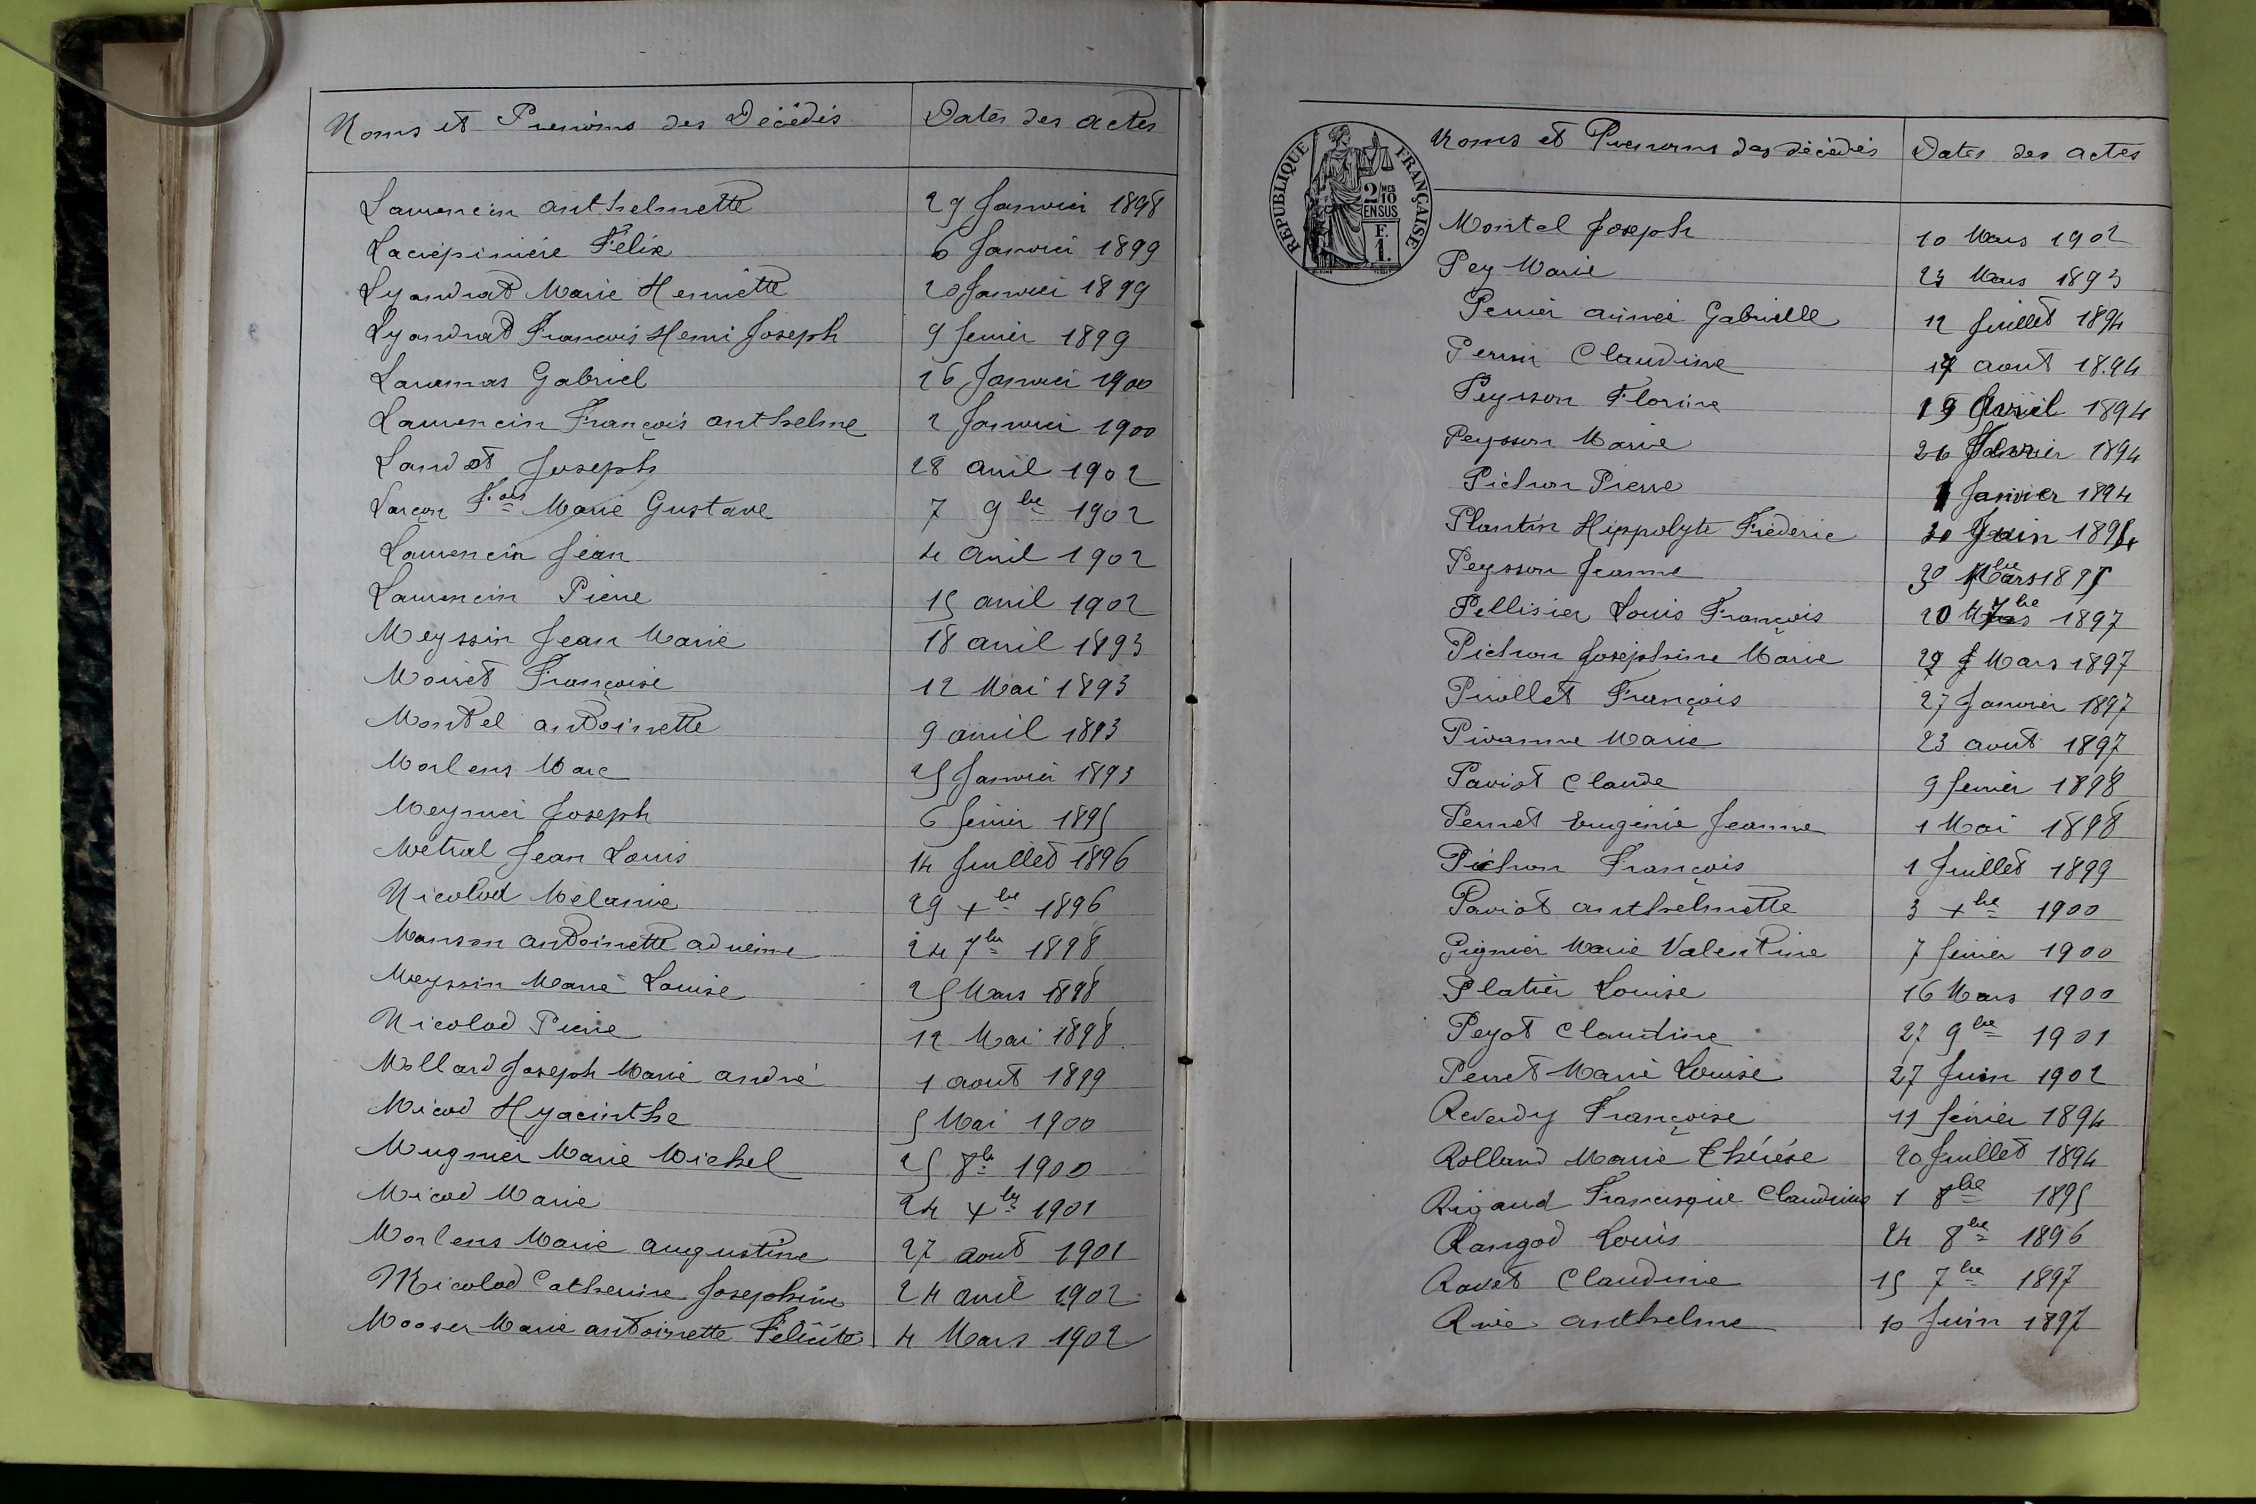 Noms et Prenoms des Décédés Dates des actes
Laurencin anthelmette 29 Janvier 1898
Lacrépinière Félix 6 Janvier 1899
Lyandrat Marie Henriette 20 Janvier 1899
Lyandrat François Henri Joseph 9 fevrier 1899
Gabriel 26 Janvier 1900
Laurencin François anthelme 2 Janvier 1900
Landot Joseph 28 avril 1902
Larçon Fois Marie Gustave 7 9bre 1902
Laurencin Jean 4 avril 1902
Laurencin Pierre 15 avril 1902
Meyssin Jean Marie 18 avril 1893
Moiret Françoise 12 Mai 1893
Montel antoinette 9 avril 1893
Morlens Marc 25 Janvier 1893
Meynier Joseph 6 février 1895
Métral Jean Louis 14 Juillet 1896
Nicolod Mélanie 29 xbre 1896
Manson antoinette 24 7bre 1898
Meyssin Marie Louise 25 Mars 1898
Nicolod Pierre 12 Mai 1898
Mollard Joseph Marie andré 1 aout 1899
Micod Hyacinthe 5 Mai 1900
Mugnier Marie Michel 25 8bre 1900
Micod Marie 24 xbre 1901
Morlens Marie augustine 27 aout 1901
Nicolod Catherine Josephine 24 avril 1902
Mooser Marie antoinette Félicité 4 Mars 1902
RÉPUBLIQUE FRANÇAISE
2/10MES
EN SUS
F.
1.
Noms et Prenoms des décédés Dates des actes
Montel Joseph 10 Mars 1902
Pey Marie 23 Mars 1893
Perrier aimée Gabrielle 12 Juillet 1894
Perrin Claudine 17 aout 1894
Peysson Florine 19 Avril 1894
Peysson Marie 26 1894
Pichon Pierre 1 Janvier 1894
Plantin Hippolyte Fréderic 30 Juin 1894
Peysson Jeanne 30 1895
Pellisier Louis François 20 7bre 1897
Pichon Josephine Marie 29 Mars 1897
Piollet François 27 Janvier 1897
Pivanne Marie 23 aout 1897
Paviot Claude 9 fevrier 1898
Perret Eugénie Jeanne 1 Mai 1898
Pichon François 1 Juillet 1899
Paviot anthelmette 3 xbre 1900
Pignier Marie Valentine 7 février 1900
Platier Louise 16 Mars 1900
Peyot Claudine 27 9bre 1901
Perret Marie Louise 27 Juin 1902
Reverdy Françoise 11 février 1894
Rolland Marie Thérèse 20 Juillet 1894
Rigaud Francisque Claudine 1 8bre 1895
Rangod Louis 24 8bre 1896
Ravet Claudine 15 7bre 1897
Rive anthelme 10 Juin 1897